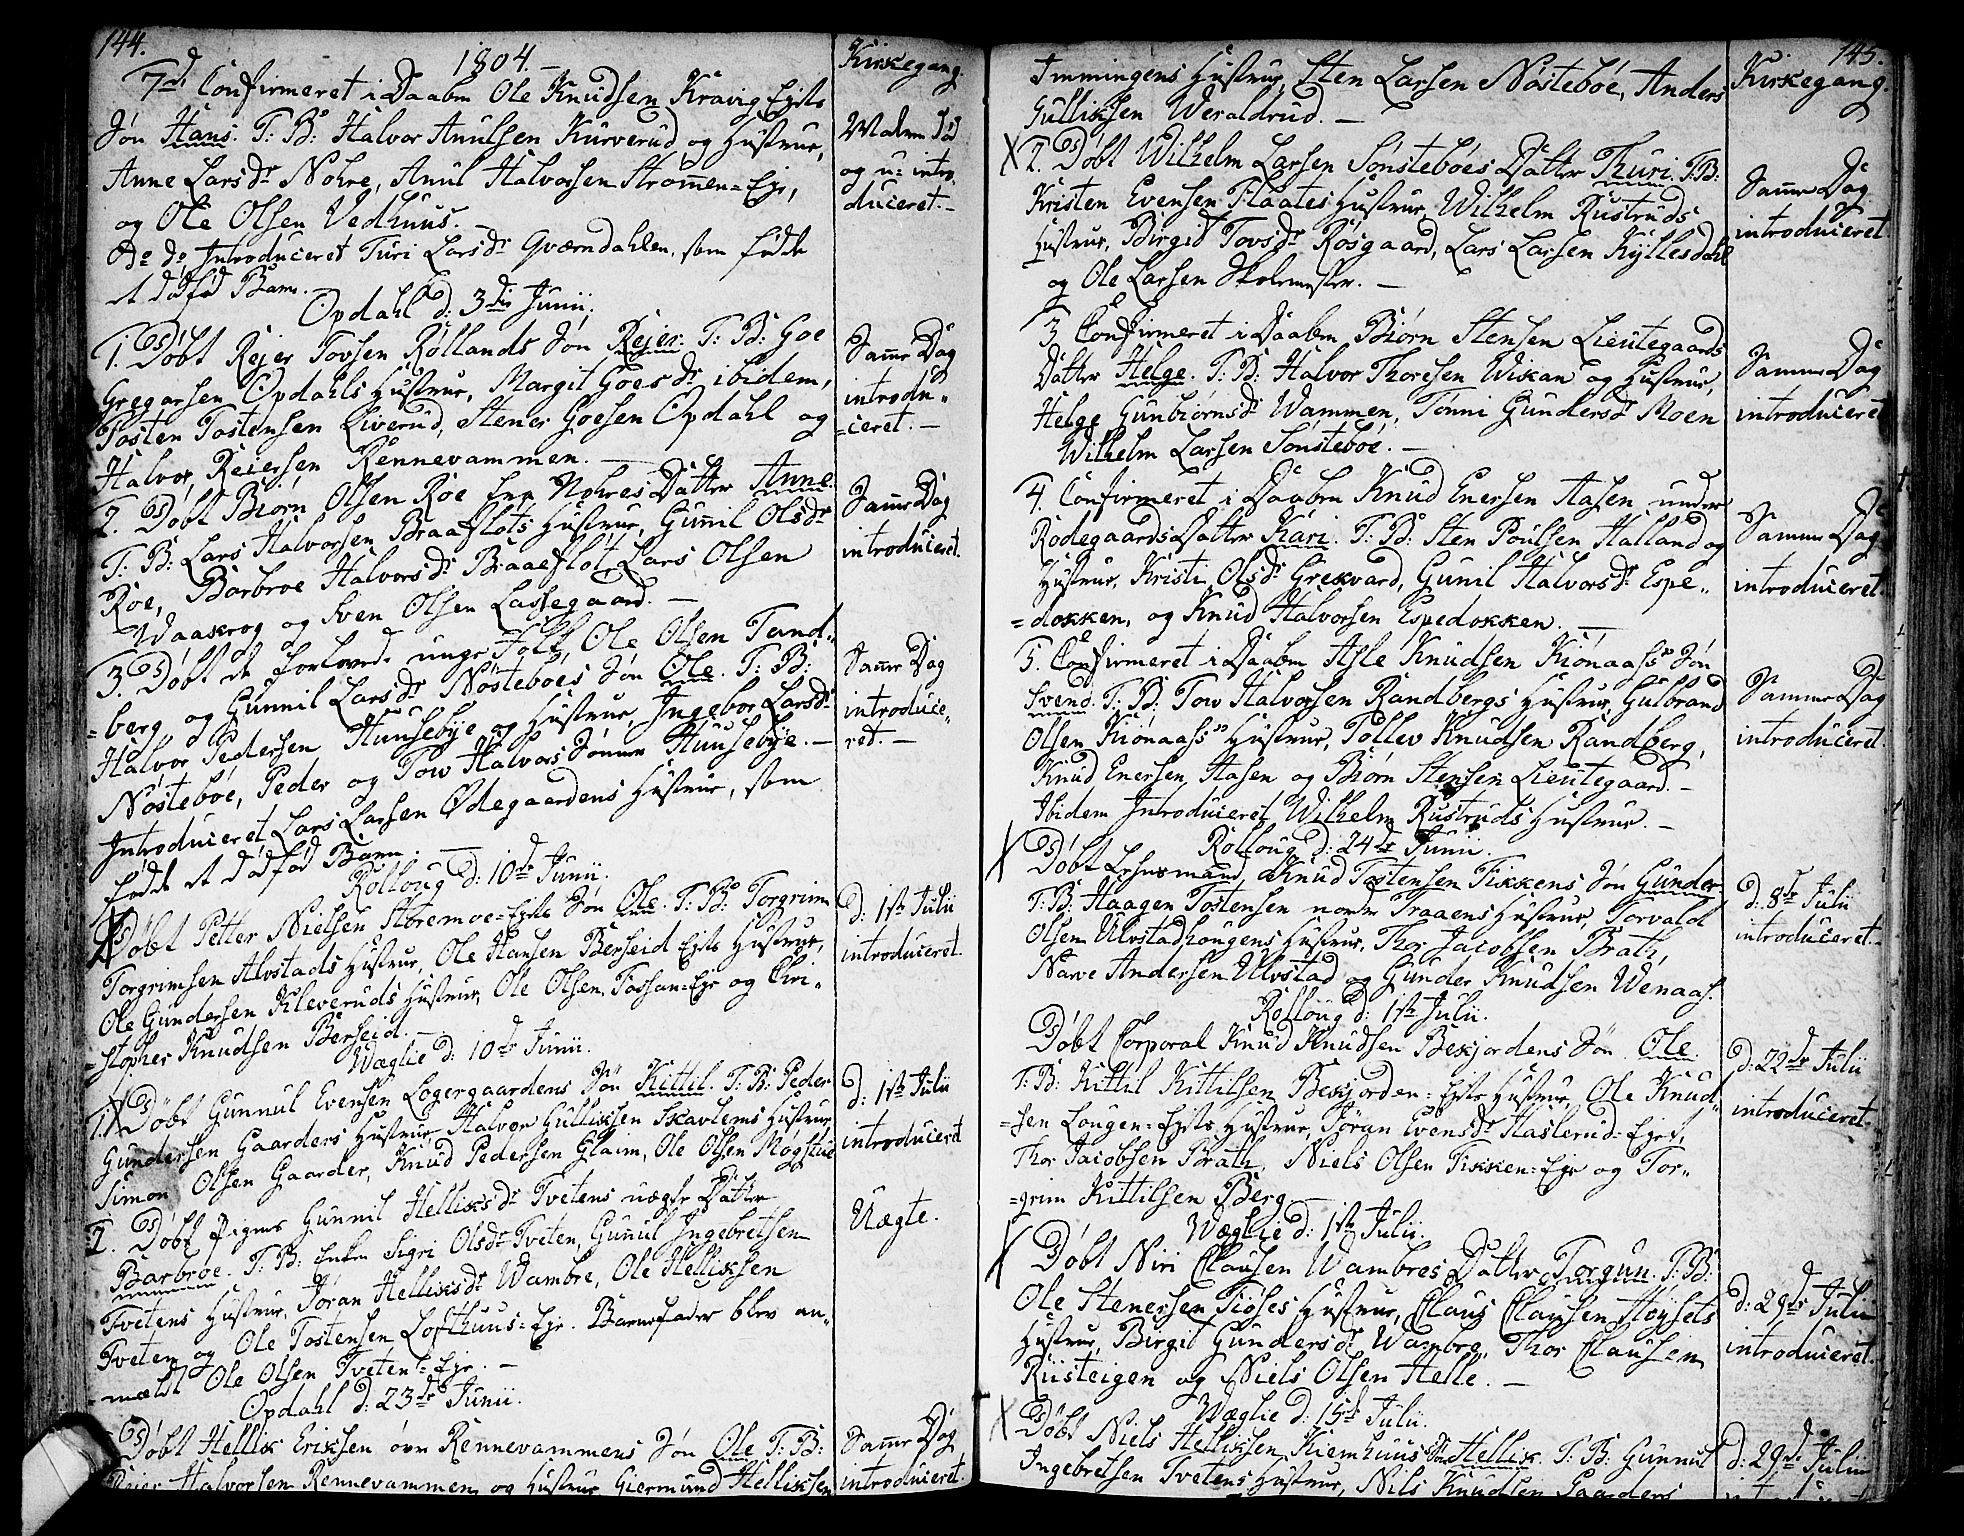 144.
1804.
7de Confirmeret i Daaben Ole Knudsen Kravig Ejets
Søn Hans. T: B: Halvor Anulsen Kurverud og Hustrue,
Anne Larsdr Nohre, Anul Halvorsen Strømmen=Eje,
og Ole Olsen Vedhuus.
do do Introduceret Turi Larsdr Gværndahlen, som fødte
et dødfød Barn.
Opdahl d: 3die Junii.
1. Døbt Rejer Tovsen Røllands Søn Rejer. T: B: Goe
Gregarsen Opdahls Hustrue, Margit Goesdr ibidem,
Tosten Tostensen Liverud, Stener Goesen Opdahl og
Halvor Reiersen Rennevammen.
2. Døbt Biørn Olsen Roe Nohres Datter Anne
T: B: Lars Halvorsen Braafløts Hustrue, Gunnil Olsdr
Roe, Barbroe Halvorsdr Braaefløt, Lars Olsen
Waaskrog og Sven Olsen Lassegaard.
3. Døbt de forlovede unge Folk, Ole Olsen Tand-
=berg og Gunnil Larsdr Nøsteboes Søn Ole. T: B:
Halvor Pedersen Huusebye og Hustrue, Ingebor Larsdr
Nøsteboe, Peder og Tow Halvors Sønner Huusebye.
Introduceret Lars Larsen Ødegaardens Hustrue, som
fødte et dødfød Barn.
Rolloug d: 10de Junii.
Døbt Petter Nielsen Storemoe=Ejets Søn Ole. T: B: Torgrim
Torgrimsen Alvstads Hustrue, Ole Hansen Berseid Ejets Hustrue,
Ole Gundersen Kleveruds Hustrue, Ole Olsen Fossan=Eje og Chri-
=stopher Knudsen Berseid.
Wæglie d: 10de Junii.
1. Døbt Gunnul Evensen Løgergaardens Søn Kittil. T: B: Peder
Gundersen Gaarders Hustrue, Halvor Gulliksen Skavlems Hustrue,
Simon Olsen Gaarder, Knud Pedersen Glaim, Ole Olsen Møgstue
2. Døbt Pigens Gunnil Helliksdr Tvetens uægte Datter
Barbroe. T: B: Enken Sigri Olsdr Tveten, Gunul Ingebretsen
Tvetens Hustrue, Jøran Helliksdr Wambre, Ole Helliksen
Tveten og Ole Tostensen Lofthuus=Eje. Barnefader blev an-
meldt Ole Olsen Tveten=Eje.
Opdahl d: 23de Junii.
Døbt Hellik Eriksen øvre Rennevammens Søn Ole T: B:
Reier Halvorsen Rennevammen og Hustrue Giermund Helliksen
Kirkegang.
Moderen død
og u=intro-
duceret.
Samme Dag
introdu-
=ceret.
Samme Dag
introduceret.
Samme Dag
introduce-
ret.
d: 1ste Julii
introduceret.
d: 1ste Julii
introduceret
Uægte.
Samme Dag
introduceret.
145.
Kirkegang.
Immingens Hustrue, Sten Larsen Nøsteboe, Anders
Gulliksen Weraldrud.
2. Døbt Wilhelm Larsen Sønsteboes Datter Thuri. T: B:
Kristen Evensen Flaates Hustrue, Wilhelm Rustruds
Hustrue, Birgit Tovsdr Røsgaard, Lars Larsen Kyllesdahl
og Ole Larsen Skolemester.
3. Confirmeret i Daaben Biørn Stensen Lieutegaards
Datter Helge. T: B: Halvor Thoresen Wikan og Hustrue,
Helge Gunbiørnsdr Wammen, Tønni Gundersdr Moen
Wilhelm Larsen Sønsteboe.
4. Confirmeret i Daaben Knud Enersen Aasen under
Rødegaards Datter Kari. T: B: Sten Poulsen Halland og
Hustrue, Kristi Olsdr Grekvard, Gunil Halvorsdr Espe-
=dokken, og Knud Halvorsen Espedokken.
5. Confirmeret i Daaben Asle Knudsen Kiønaass's Søn
Svend. T: B: Tow Halvorsen Randbergs Hustrue, Gulbrand
Olsen Kiønaass's Hustrue, Tollev Knudsen Randberg,
Knud Enersen Aasen og Biørn Stensen Lieutegaard.
Ibidem Introduceret Wilhelm Rustruds Hustrue.
Rolloug d: 24de Junii.
Døbt Lehnsmand Knud Tostensen Fikkens Søn Gunder
T: B: Haagen Tostensen nordre Traaens Hustrue, Torvald
Olsen Ulvstadhougens Hustrue, Thor Jacobsen Brath,
Narve Andersen Ulvstad og Gunder Knudsen Wenaas.
Rolloug d: 1ste Julii.
Døbt Corporal Knud Knudsen Beskjordens Søn Ole.
T: B: Kittil Kittilsen Beskjorden=Ejets Hustrue, Ole Knud-
=sen Lougen=Ejets Hustrue, Jøran Evensdr Haslerud=Ejet,
Thor Jacobsen Brath, Niels Olsen Fikken=Eje og Tor-
=grim Kittilsen Berg
Wæglie d: 1ste Julii.
Døbt Niri Clausen Wambres Datter Torgun. T: B:
Ole Stenersen Fiøses Hustrue, Claus Clausen Høysets
Hustrue, Birgit Gundersdr Wambre, Thor Clausen
Riisteigen og Niels Olsen Helle.
Wæglie d: 15de Julii.
Døbt Niels Helliksen Kiemhuus Søn Hellik. T: B: Gunnul
Ingebretsen Tvetens Hustrue, Nils Knudsen Gaarders
Samme Dag
introduceret
Samme Dag
introduceret
Samme Dag
introduceret.
Samme Dag
introduceret.
d: 8de Julii
introduceret.
d: 22de Julii
introduceret.
d: 29de Julii
introduceret.
d: 29de Julii